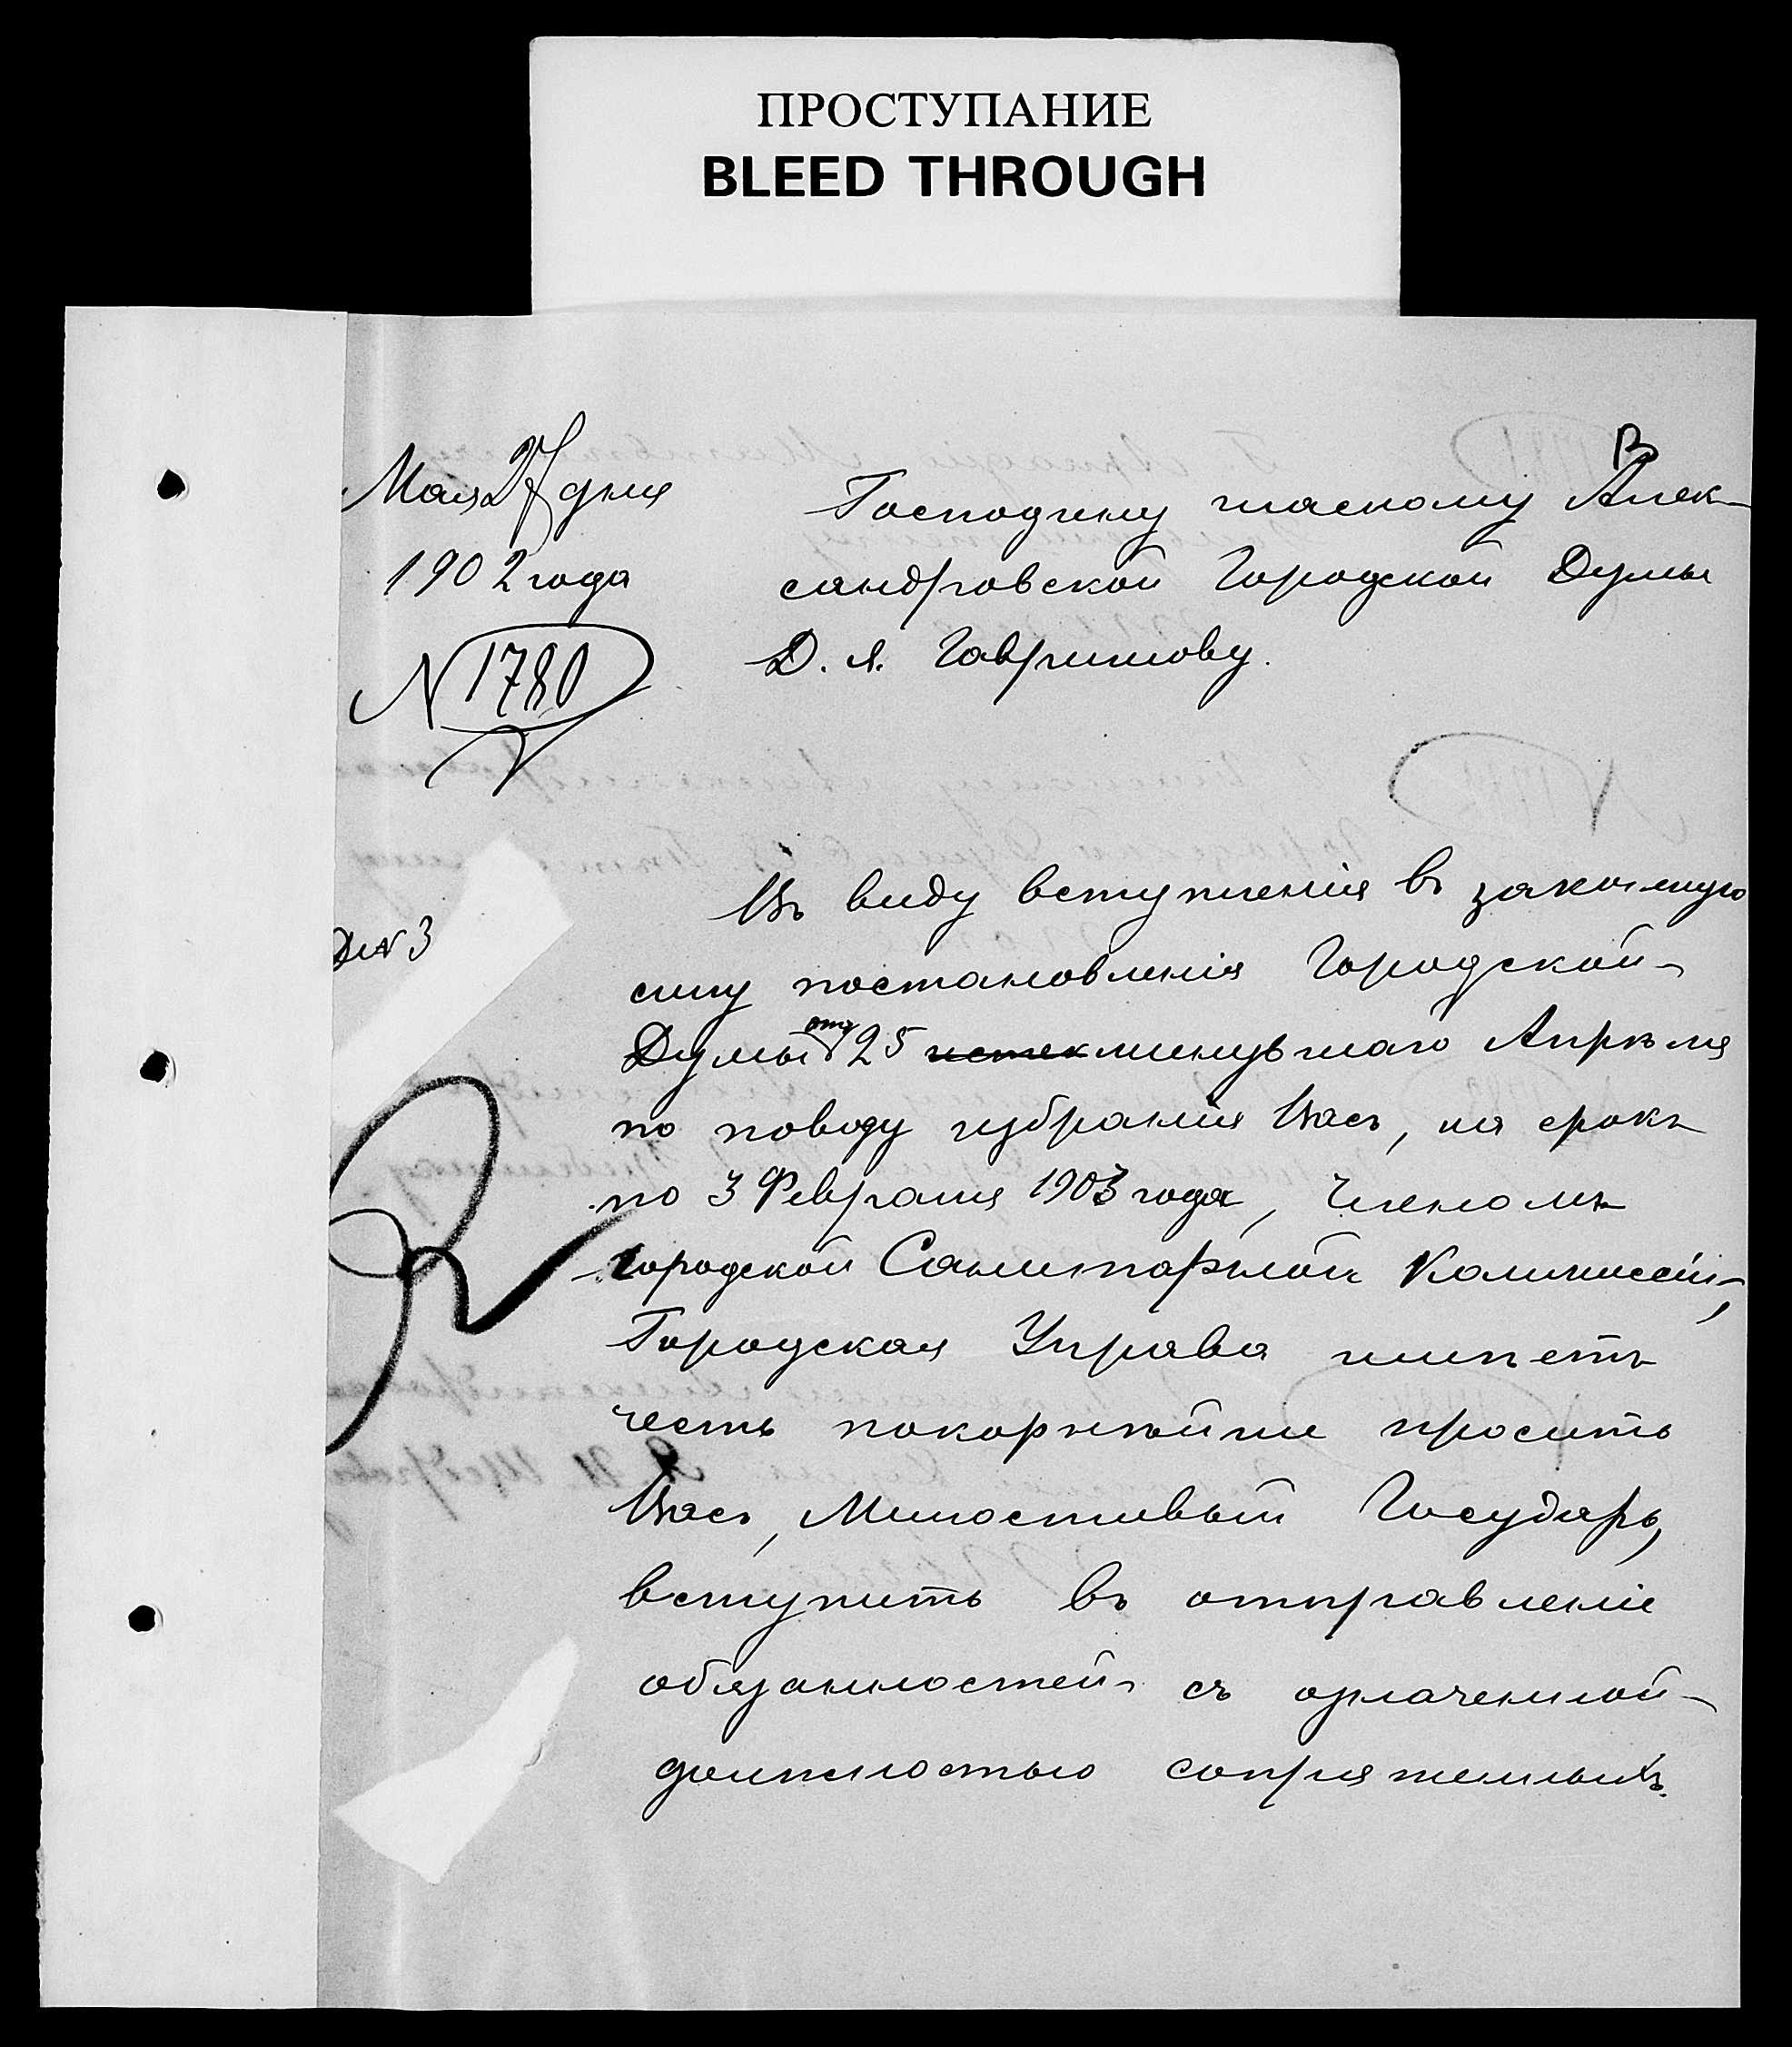 ПРОСТУПАНИЕ
BLEED THROUGH
В
Мая 27 дня
1902 года
N 1780
Господину гласному Алек-
сандровской Городской Думы
Д. Я. Гаврилову.
N 3
Въ виду вступленія въ законную
силу постановленія Городской
Думы отъ 25 истек минувшаго Апрѣля
по поводу избранія Васъ, на срокъ
по 3 Февраля 1903 года, Членомъ
городской Санитарной Коммиссіи,
Городская Управа имѣетъ
честь покорнѣйше просить
Васъ, Милостивый Государь,
вступить въ отправленіе
обязанностей съ означенной
должностью сопряженныхъ.